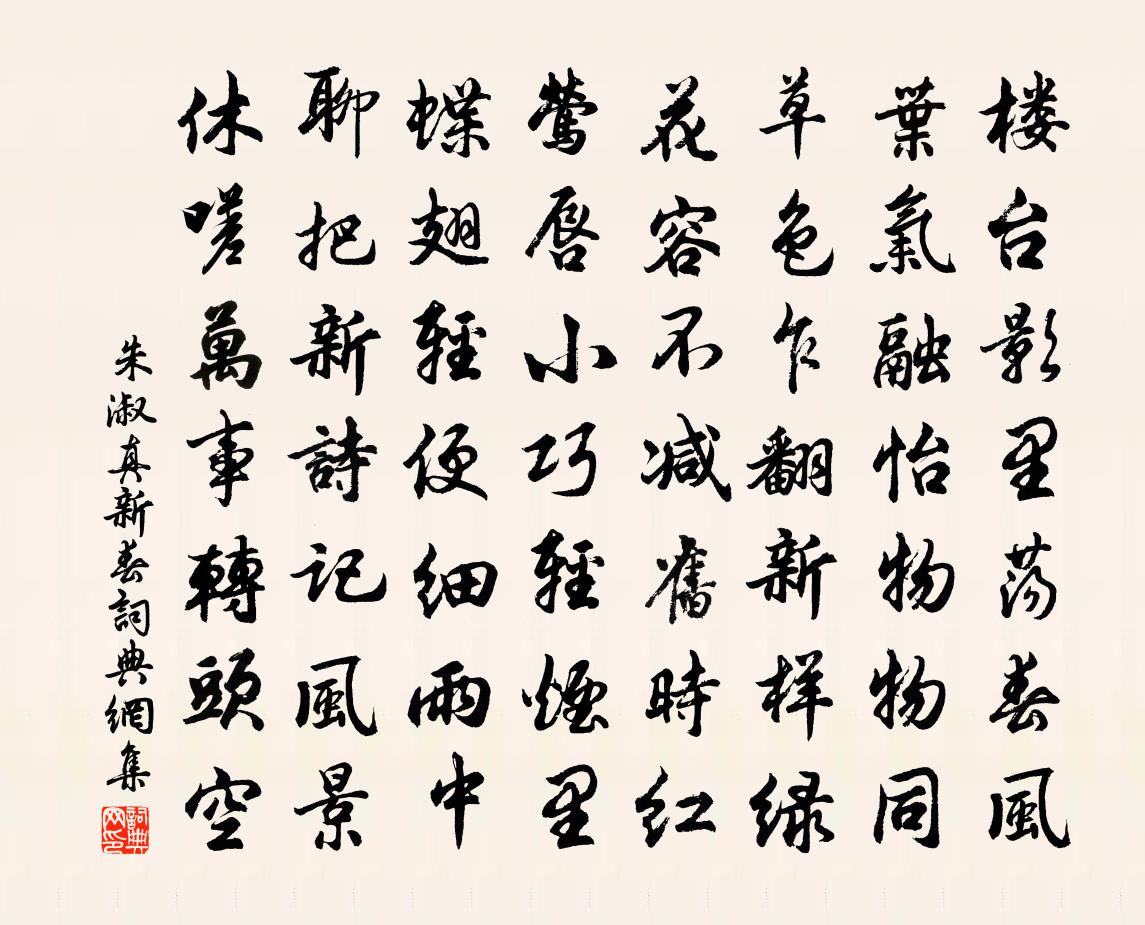 楼台影里荡春風
葉氣融怡物物同
草色乍翻新样绿
花容不减舊時红
莺唇小巧輕煙里
蝶翅輕便细雨中
聊把新詩记風景
休嗟萬事轉頭空
朱淑真新春詞典網集
詞典网印